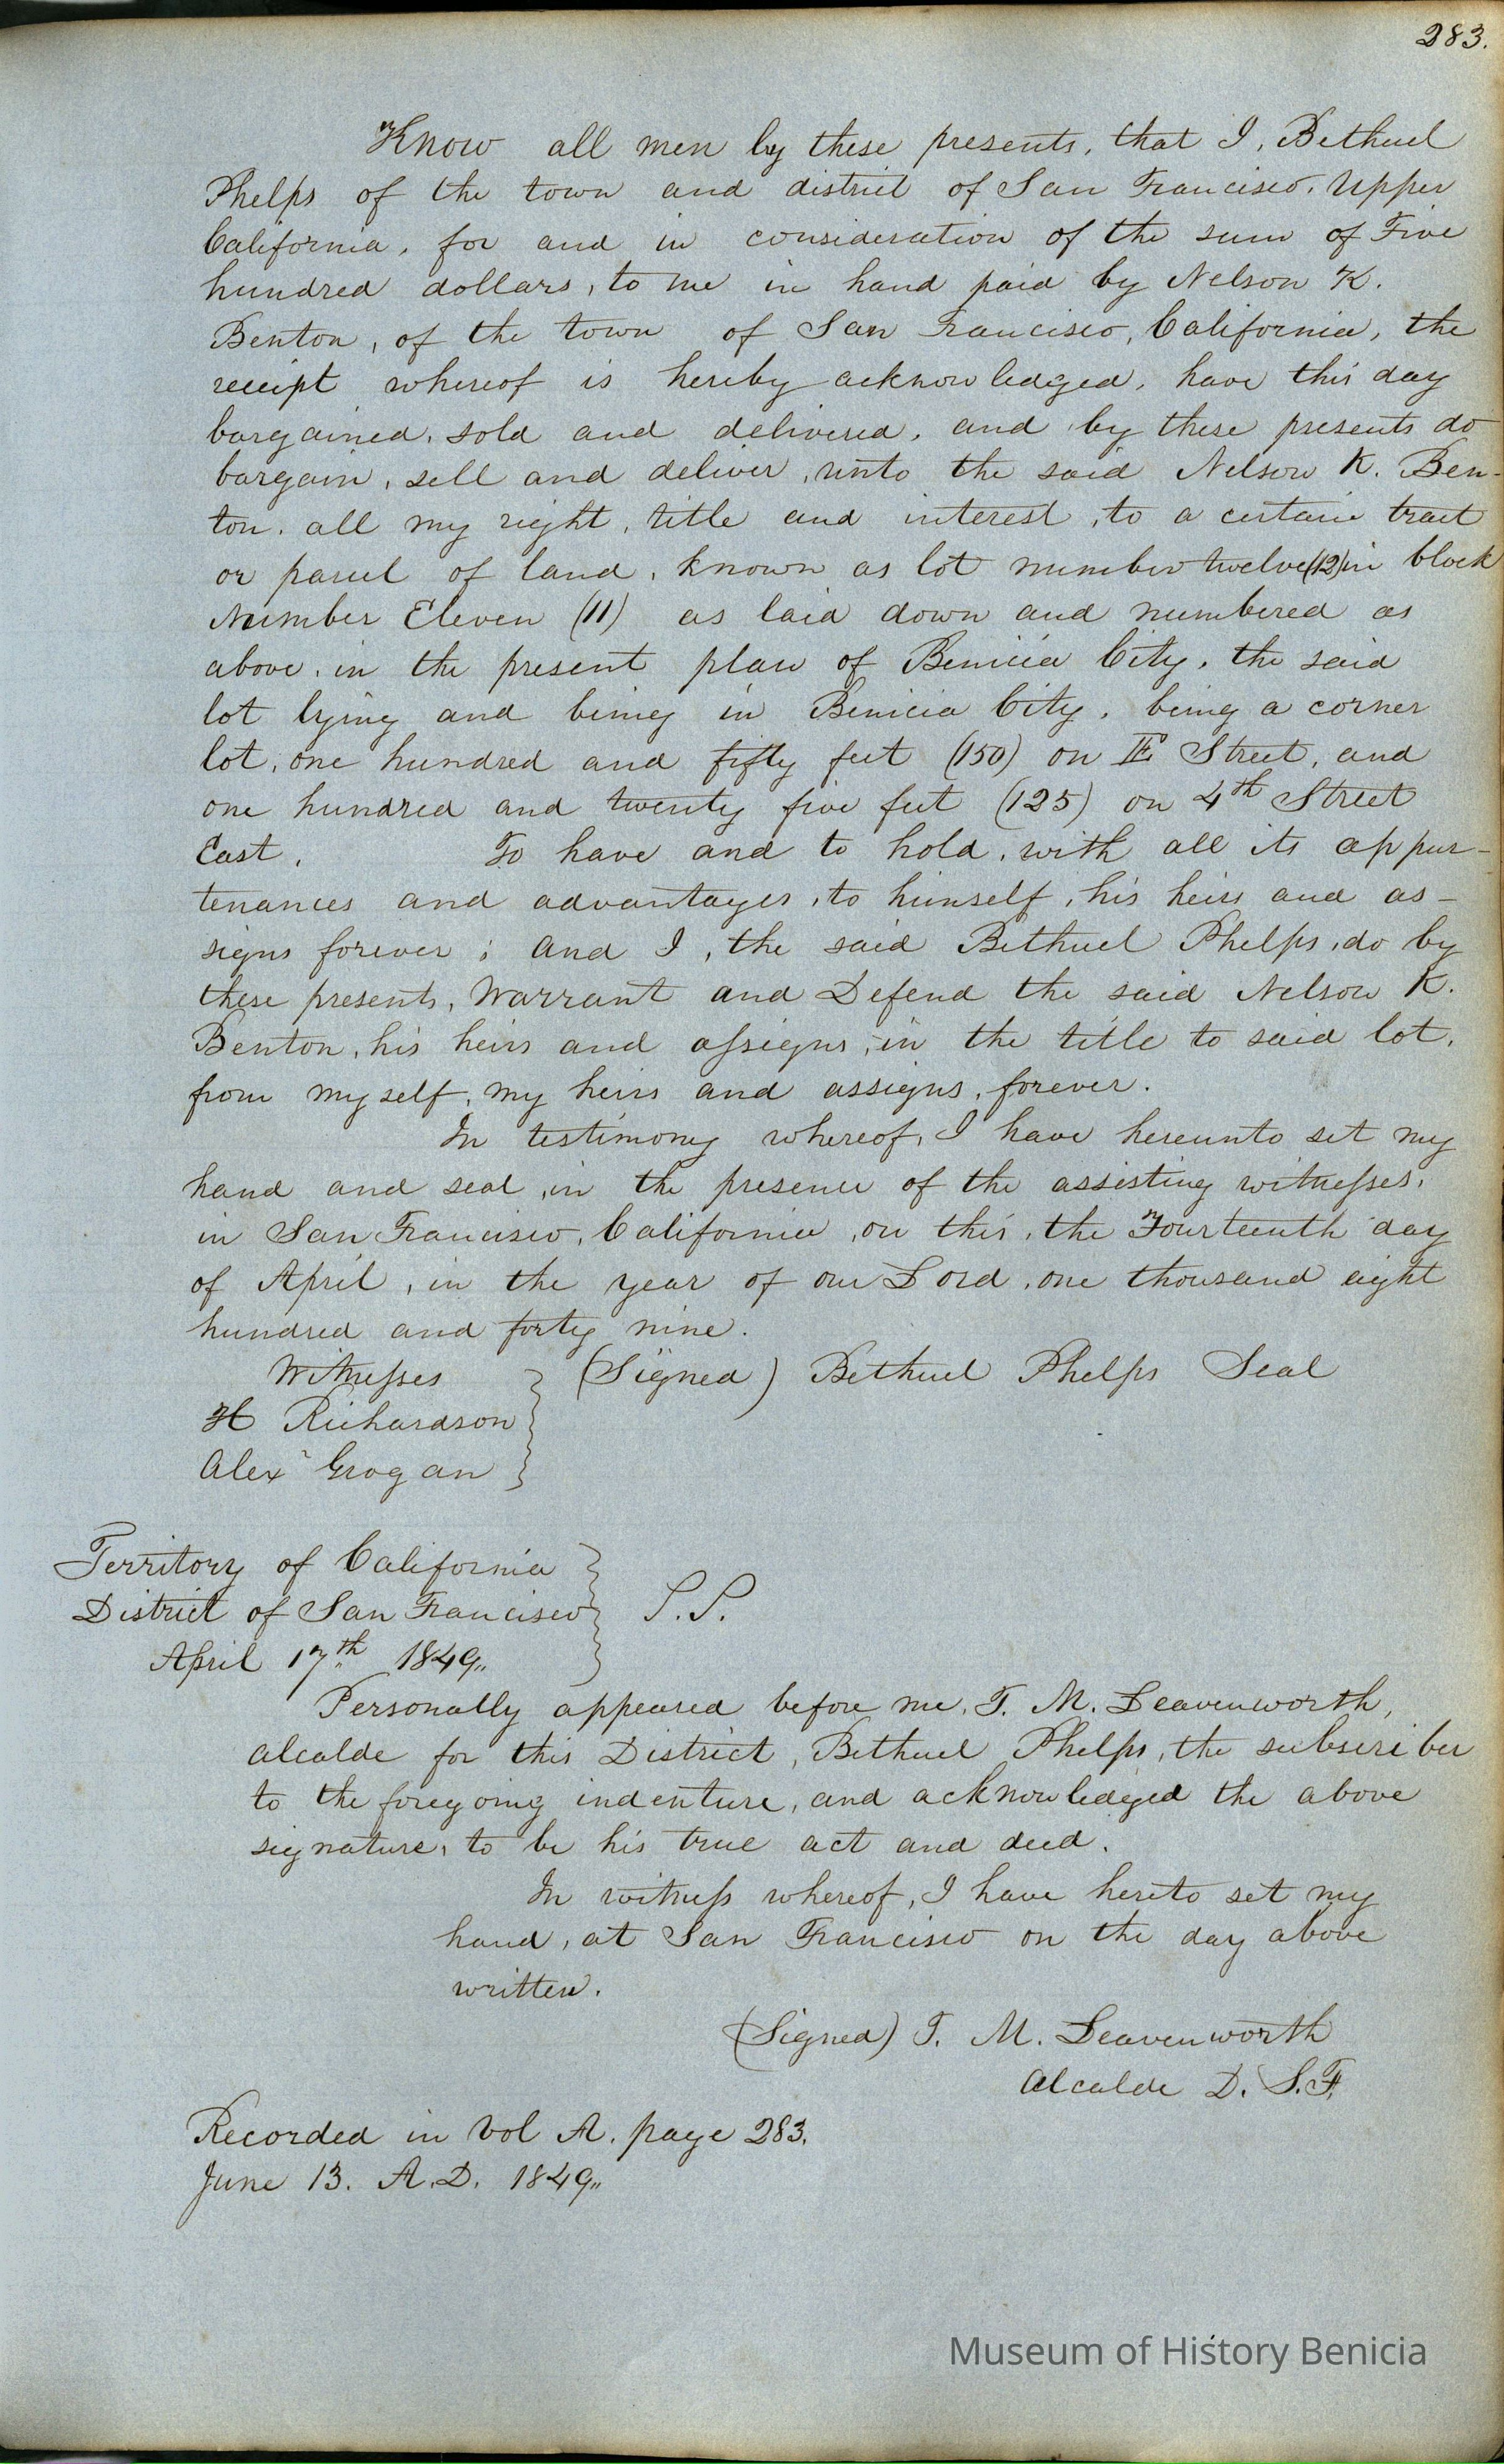 283.
Know all men by these presents, that I, Bethuel
Phelps of the town and district of San Francisco, Upper
California, for and in consideration of the sum of Five
hundred dollars, to me in hand paid by Nelson K.
Benton, of the town of San Francisco, California, the
receipt whereof is hereby acknowledged, have this day
bargained, sold and delivered, and by these presents do
bargain, sell and deliver, unto the said Nelson K. Ben-
ton, all my right, title and interest, to a certain tract
or parcel of land, known as lot number twelve (12) in block
Number Eleven (11) as laid down and numbered as
above, in the present plan of Benicia City, the said
lot lying and being in Benicia City, being a corner
lot, one hundred and fifty feet (150) on E Street, and
one hundred and twenty five feet (125) on 4th Street
East. To have and to hold, with all its appur-
tenances and advantages, to himself, his heirs and as-
signs forever; and I, the said Bethuel Phelps, do by
these presents, Warrant and Defend the said Nelson K.
Benton, his heirs and assigns, in the title to said lot,
from myself, my heirs and assigns, forever.
In testimony whereof, I have hereunto set my
hand and seal, in the presence of the assisting witnesses,
in San Francisco, California, on this, the Fourteenth day
of April, in the year of our Lord, one thousand eight
hundred and forty nine.
Witnesses (Signed) Bethuel Phelps Seal
H Richardson
Alexr Grogan
Territory of California
District of San Francisco S.S.
April 17th 1849,,
Personally appeared before me, T. M. Leavenworth,
Alcalde for this District, Bethuel Phelps, the subscriber
to the foregoing indenture, and acknowledged the above
signature, to be his true act and deed.
In witness whereof, I have hereto set my
hand, at San Francisco on the day above
written.
(Signed) T. M. Leavenworth
Alcalde D. S.F.
Recorded in Vol A. page 283.
June 13. A.D. 1849,,
Museum of History Benicia